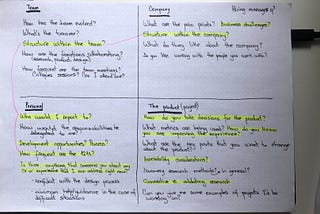 Team
How has the team evolved?
What's the turnover?
Structure within the team?
How are the functions
(research, product, design)
How frequent are the team meetings?
Critiques sessions? Can I attend one?
Company
Hiring manager
What are the pain points? Business challenges?
Structure within the company?
What do they like about the company?
Do you like working with the people you work with?
Personal
Who would I report to?
How would the
Development opportunities?
How frequent are the 121s?
Is there anything that concerns you about my
CV or experience that I can address right now?
- confident with the design process
- minimum help/guidance in the case of
difficult situations
The product (project)
How do you take decisions for the product?
What metrics are being used? How do you know
you are improving the experience?
What are the key parts that you want to change
about the product?
Accessibility considerations?
research methods, in general?
Can you give me some examples of projects I'd be
working on?